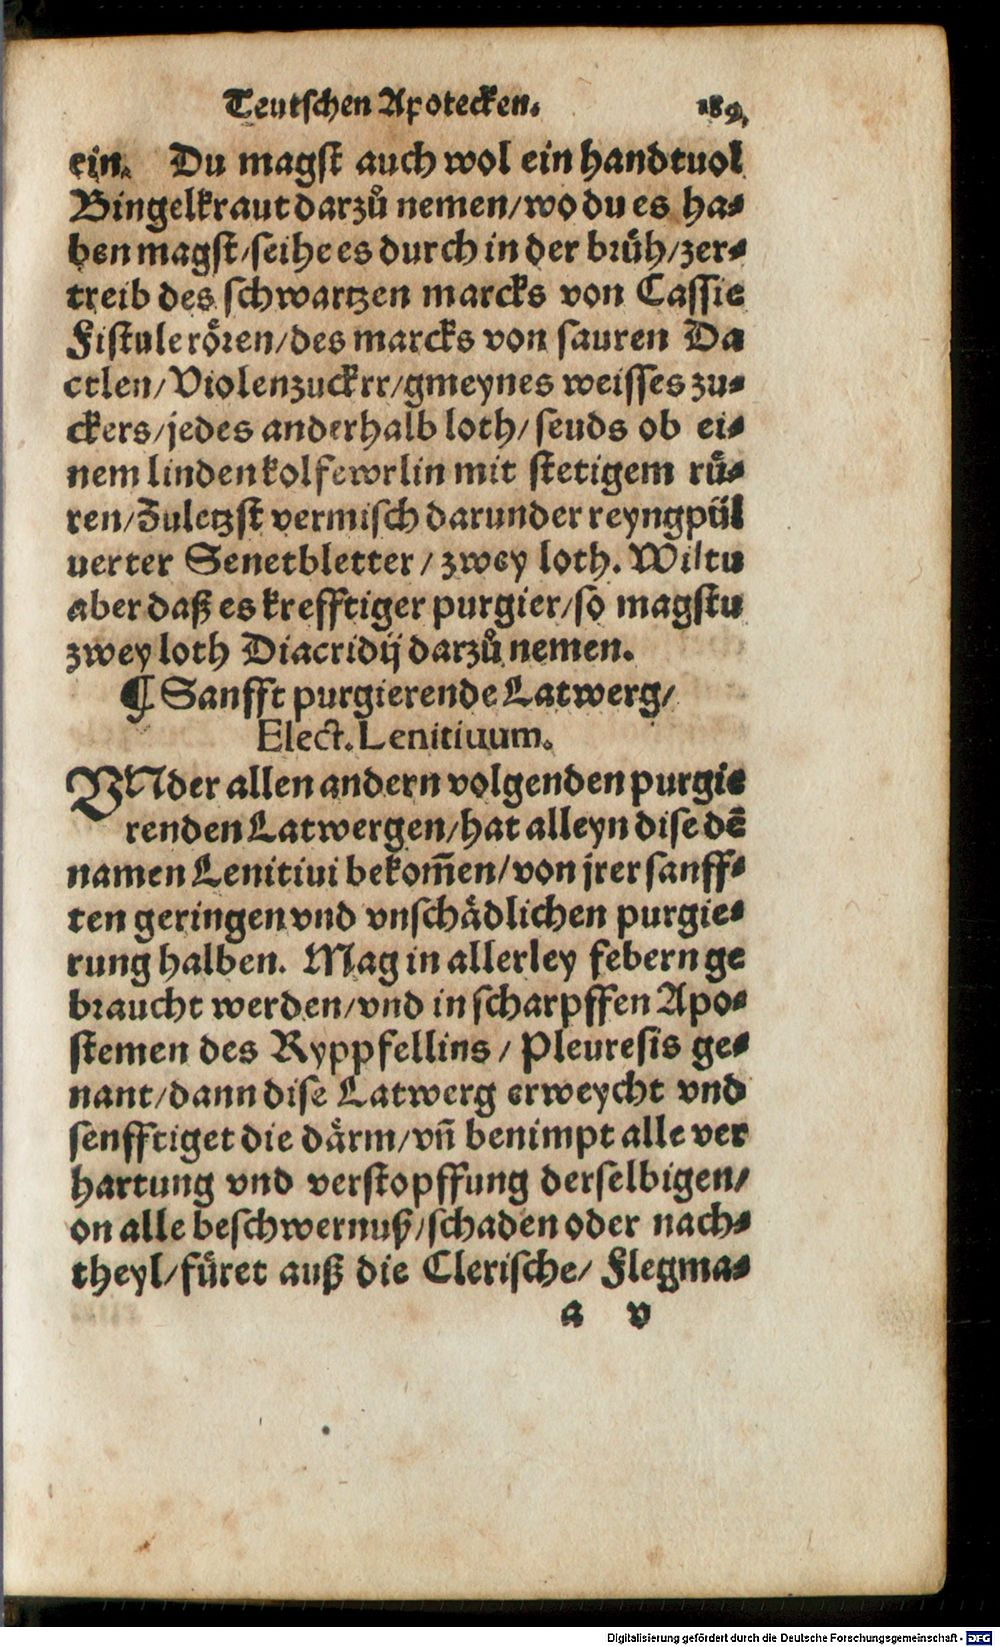 Teutschen Apotecken. 189.
ein. Du magst auch wol ein handtuol
Bingelkraut darzů nemen/wo du es ha-
ben magst/seihe es durch in der brüh/zer-
treib des schwartzen marcks von Cassie
Fistule rören/des marcks von sauren Da
ctlen/Violenzuckrr/gmeynes weisses zu-
ckers/jedes anderhalb loth/seuds ob ei-
nem linden kolfewrlin mit stetigem rů-
ren/Zuletzst vermisch darunder reyngpül
uerter Senetbletter/zwey loth. Wiltu
aber daß es krefftiger purgier/so magstu
zwey loth Diacridij darzů nemen.
¶ Sanfft purgierende Latwerg/
Elect. Lenitiuum.
VNder allen andern volgenden purgie
renden Latwergen/hat alleyn dise dē
namen Lenitiui bekom̄en/von jrer sanff-
ten geringen vnd vnschädlichen purgie-
rung halben. Mag in allerley febern ge
braucht werden/vnd in scharpffen Apo-
stemen des Ryppfellins/Pleuresis ge-
nant/dann dise Latwerg erweycht vnd
senfftiget die därm/vn̄ benimpt alle ver
hartung vnd verstopffung derselbigen/
on alle beschwernuß/schaden oder nach-
theyl/füret auß die Clerische/Flegma-
a v
Digitalisierung gefördert durch die Deutsche Forschungsgemeinschaft - DFG